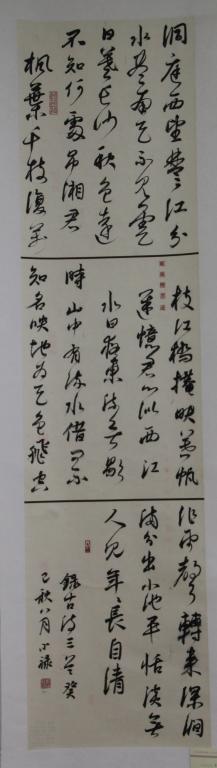 洞庭西望楚江分
水盡南天不見雲
日落長沙秋色遠
不知何處吊湘君
楓葉千枝復萬
枝江橋掩映暮帆
遲憶君心似西江
水日夜東流無歇
時山中有流水借問不
知名映地為天色飛空
作雨聲轉來深澗
滿分出小池平恬淡無
人見年長自清
錄古詩三首癸
巳秋八月小祿